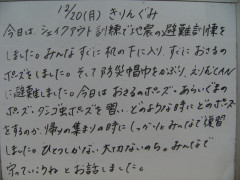 12/20(月) きりんぐみ
今日は、シェイクアウト訓練で地震の避難訓練を
しました。みんな すぐに 机の下に入り、すぐに おさるの
ポーズをしました。そして 防災帽巾をかぶり、えりむLAN
に避難しました。今日は おさるのポーズ・あらいぐまの
ポーズ・ダンゴ虫ポーズを習い、どのような時に どのポーズ
をするのか、帰りの集まりの時に しっかりと みんなで復習
しました。ひとつしかない 大切ないのち。みんなで
守っていこうね とお話しました。